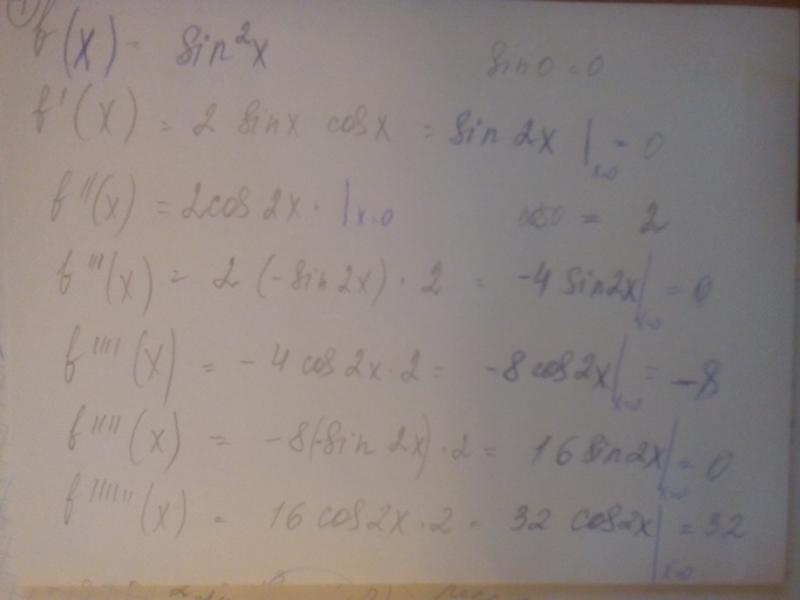 f(x) = sin²x sin 0 = 0
f'(x) = 2 sinx cosx = sin 2x |x=0 = 0
f''(x) = 2cos 2x · |x=0 = 2
f'''(x) = 2 (-sin2x) · 2 = -4 sin2x|x=0 = 0
f''''(x) = -4 cos2x · 2 = -8 cos2x|x=0 = -8
f'''''(x) = -8(-sin 2x) · 2 = 16 sin2x|x=0 = 0
f''''''(x) = 16 cos2x · 2 = 32 cos2x|x=0 = 32